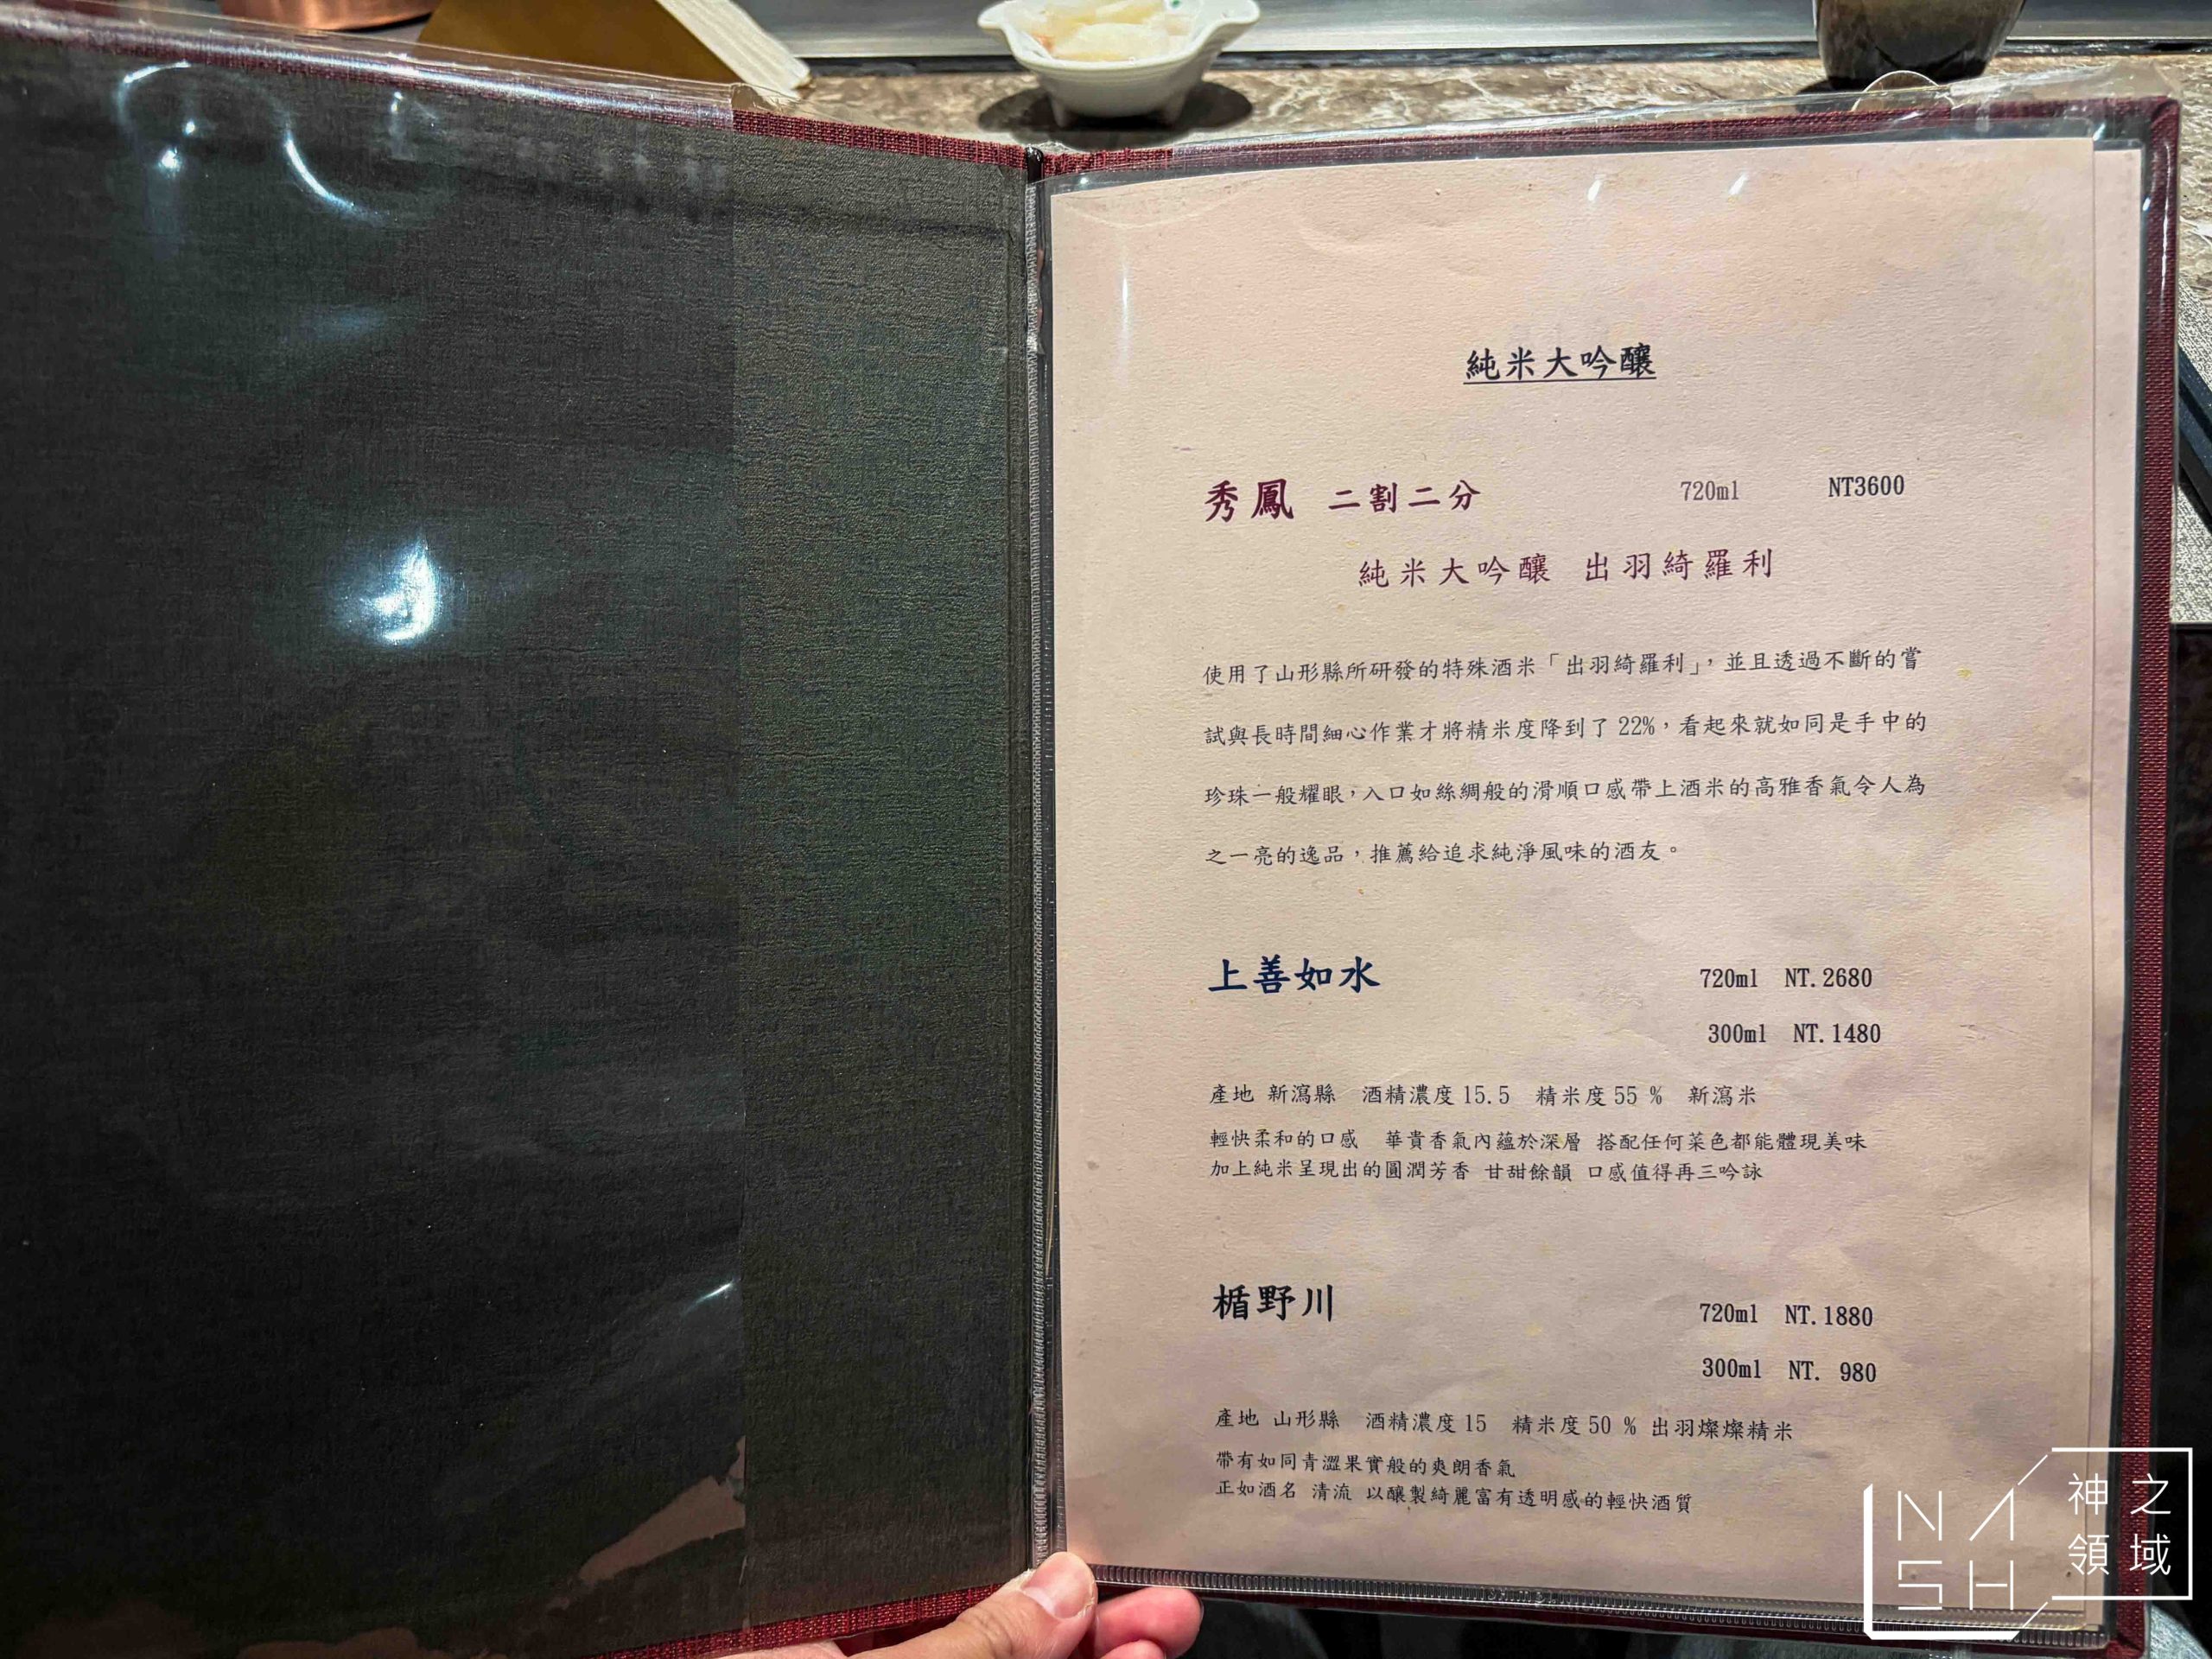 純米大吟釀
秀鳳 二割二分 720ml NT3600
純米大吟釀 出羽綺羅利
使用了山形縣所研發的特殊酒米「出羽綺羅利」，並且透過不斷的嘗
試與長時間細心作業才將精米度降到了22%，看起來就如同是手中的
珍珠一般耀眼，入口如絲綢般的滑順口感帶上酒米的高雅香氣令人為
之一亮的逸品，推薦給追求純淨風味的酒友。
上善如水 720ml NT.2680
300ml NT.1480
產地 新瀉縣 酒精濃度15.5 精米度55 % 新瀉米
輕快柔和的口感 華貴香氣內蘊於深層 搭配任何菜色都能體現美味
加上純米呈現出的圓潤芳香 甘甜餘韻 口感值得再三吟詠
楯野川 720ml NT.1880
300ml NT. 980
產地 山形縣 酒精濃度15 精米度50 % 出羽燦燦精米
帶有如同青澀果實般的爽朗香氣
正如酒名 清流 以釀製綺麗富有透明感的輕快酒質
NASH
神之
領域